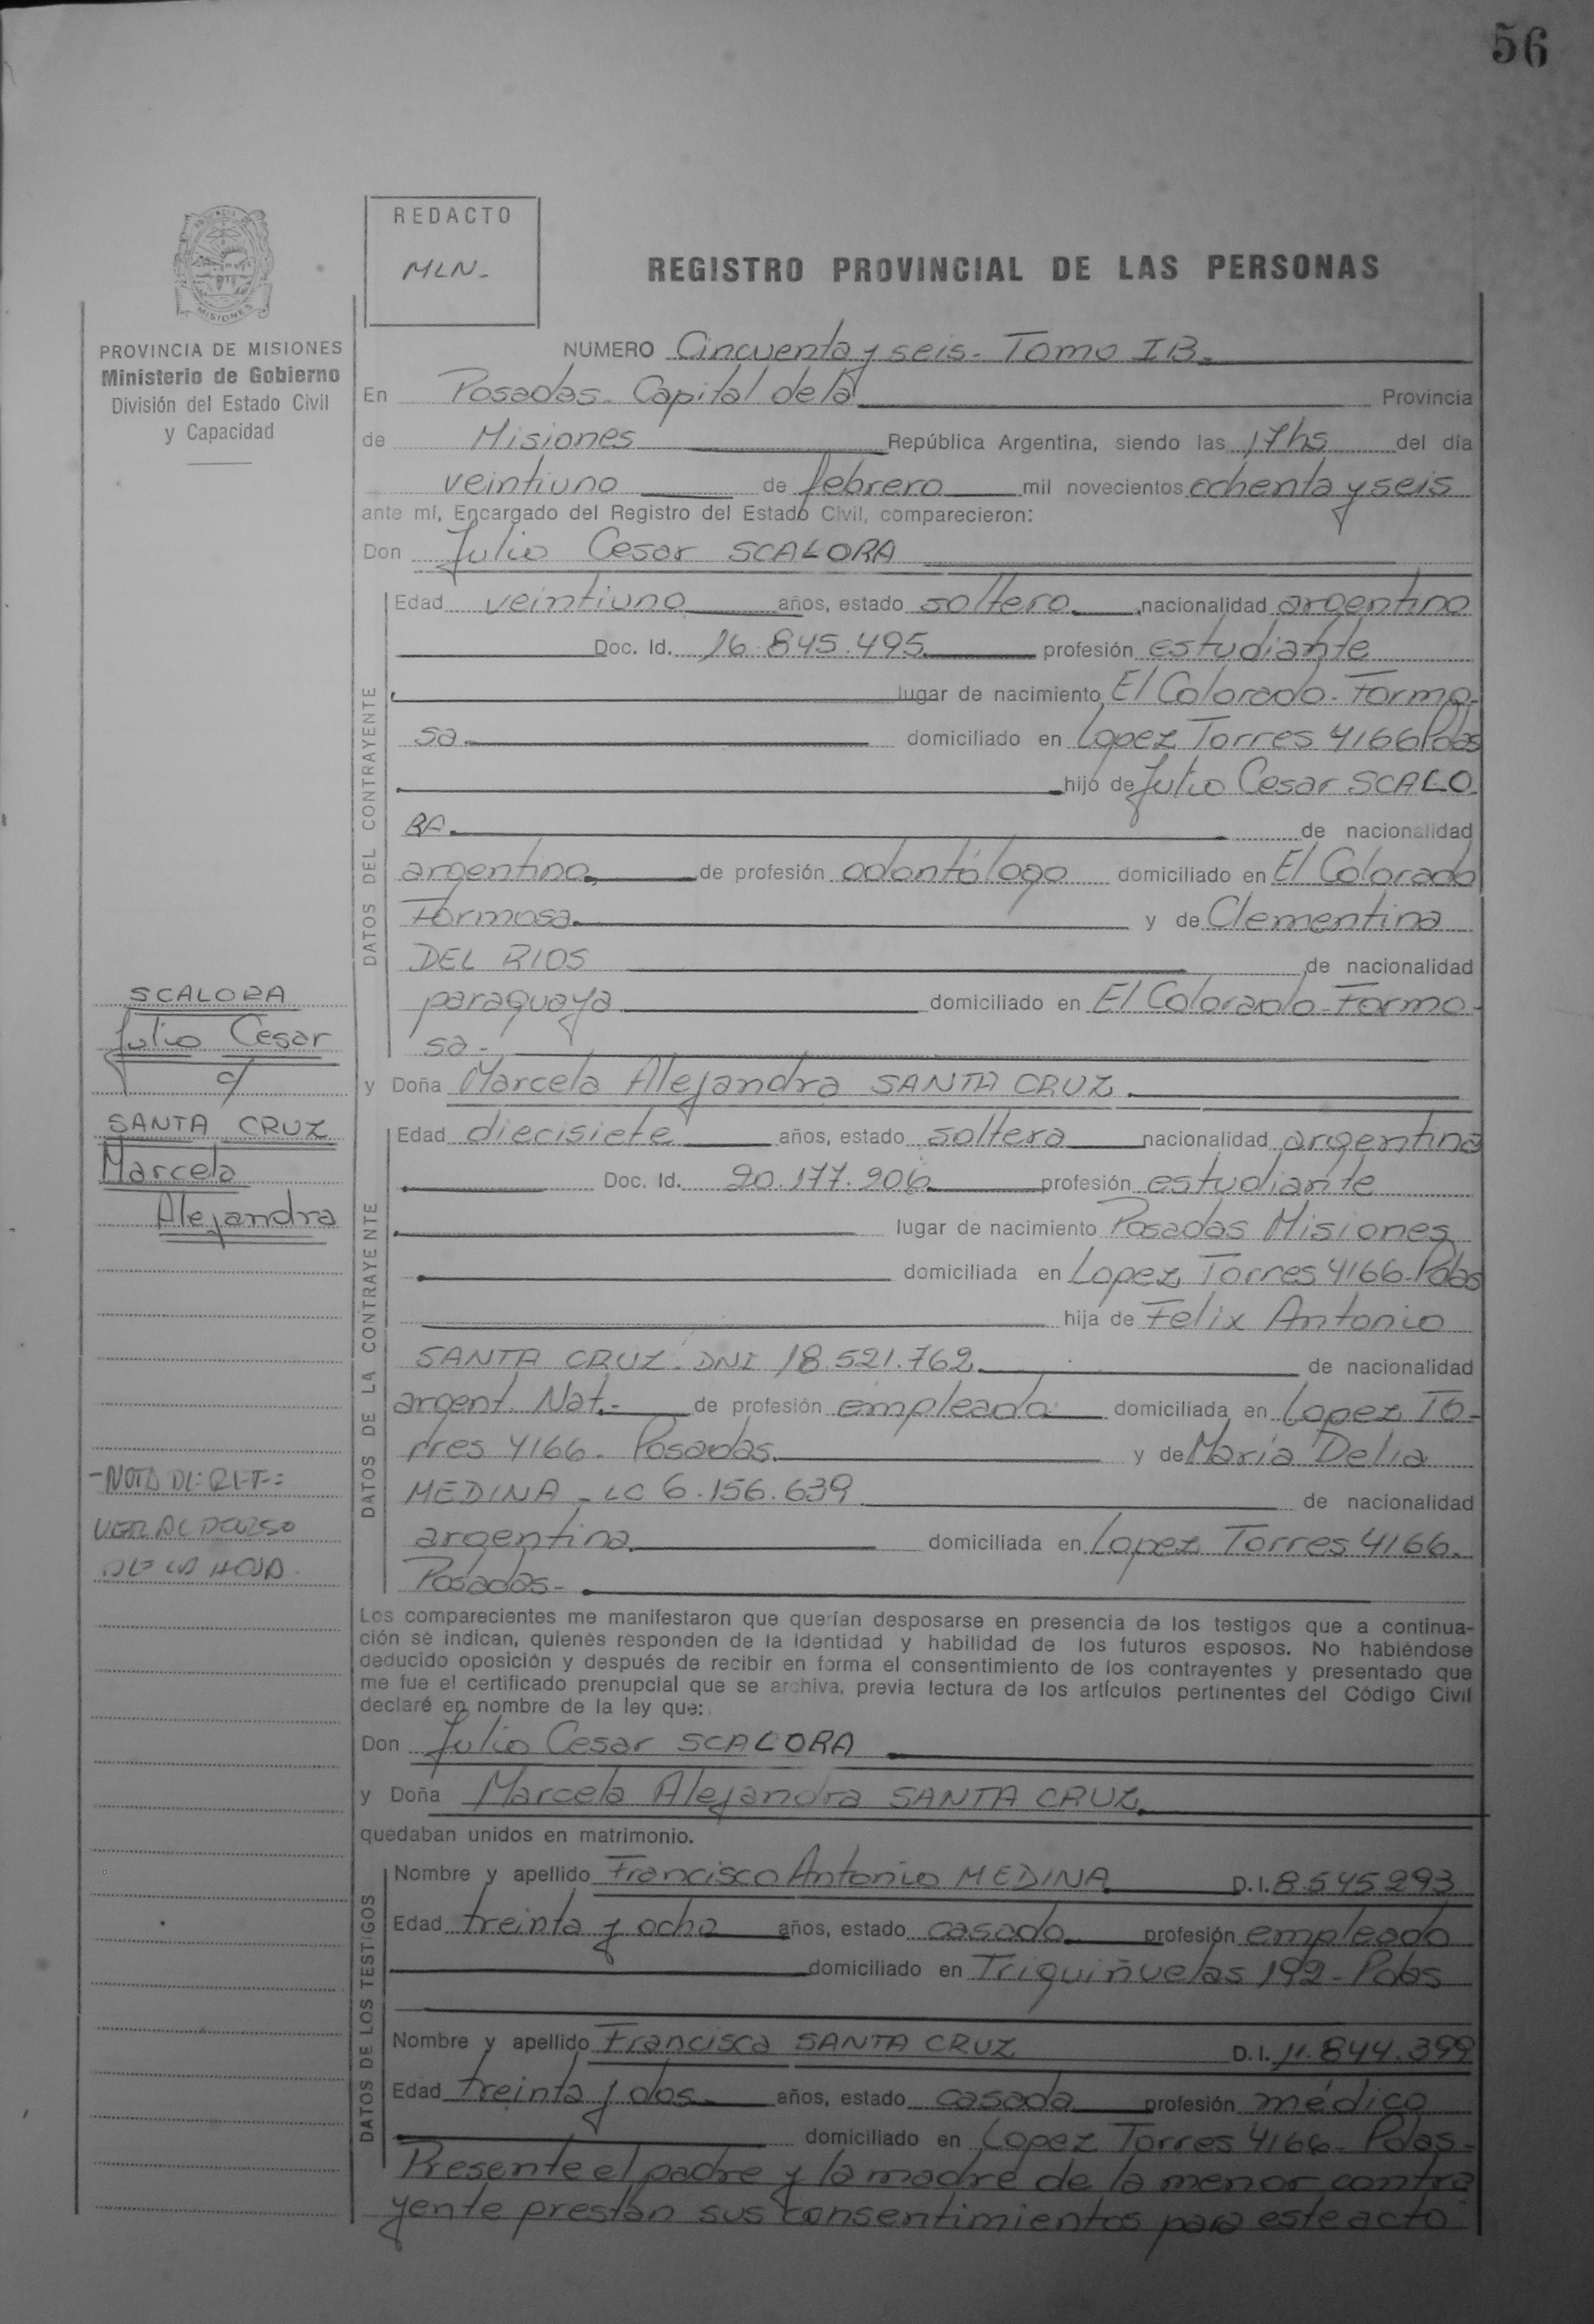 56
REDACTO
MLN-
MISIONES
REGISTRO PROVINCIAL DE LAS PERSONAS
PROVINCIA DE MISIONES
Ministerio de Gobierno
División del Estado Civil
y Capacidad
NUMERO Cincuenta y seis - Tomo IB -
En Posadas - Capital de la Provincia
de Misiones República Argentina, siendo las 17 hs del día
veintiuno de febrero mil novecientos ochenta y seis
ante mí, Encargado del Registro del Estado Civil, comparecieron:
Don Julio Cesar SCALORA
DATOS DEL CONTRAYENTE
Edad veintiuno años, estado soltero nacionalidad argentino
Doc. Id. 16.845.495 profesión estudiante
lugar de nacimiento El Colorado - Formo-
sa domiciliado en Lopez Torres 4166 Pdas
hijo de Julio Cesar SCALO
RA. de nacionalidad
argentino, de profesión odontólogo domiciliado en El Colorado
Formosa y de Clementina
DEL RIOS de nacionalidad
paraguaya domiciliado en El Colorado - Formo-
sa -
SCALORA
Julio Cesar
c/
SANTA CRUZ
Marcela
Alejandra
y Doña Marcela Alejandra SANTA CRUZ
DATOS DE LA CONTRAYENTE
Edad diecisiete años, estado soltera nacionalidad argentina
Doc. Id. 20.177.206 profesión estudiante
lugar de nacimiento Posadas Misiones
domiciliada en Lopez Torres 4166 - Pdas
hija de Felix Antonio
SANTA CRUZ - DNI 18.521.762 de nacionalidad
argent. Nat.- de profesión empleado domiciliada en Lopez To-
rres 4166 - Posadas y de María Delia
MEDINA - LC 6.156.639 de nacionalidad
argentina domiciliada en Lopez Torres 4166.
Posadas -
- NOTA DE REF:
VER AL DORSO
DE LA HOJA.
Los comparecientes me manifestaron que querían desposarse en presencia de los testigos que a continua-
ción se indican, quienes responden de la identidad y habilidad de los futuros esposos. No habiéndose
deducido oposición y después de recibir en forma el consentimiento de los contrayentes y presentado que
me fue el certificado prenupcial que se archiva, previa lectura de los artículos pertinentes del Código Civil
declaré en nombre de la ley que:
Don Julio Cesar SCALORA
y Doña Marcela Alejandra SANTA CRUZ
quedaban unidos en matrimonio.
DATOS DE LOS TESTIGOS
Nombre y apellido Francisco Antonio MEDINA D.I. 8545293
Edad treinta y ocho años, estado casado profesión empleado
domiciliado en Triquiñuelas 192 - Pdas
Nombre y apellido Francisca SANTA CRUZ D.I. 11.844.399
Edad treinta y dos años, estado casada profesión médico
domiciliado en Lopez Torres 4166 - Pdas -
Presente el padre y la madre de la menor contra
yente prestan sus consentimientos para este acto